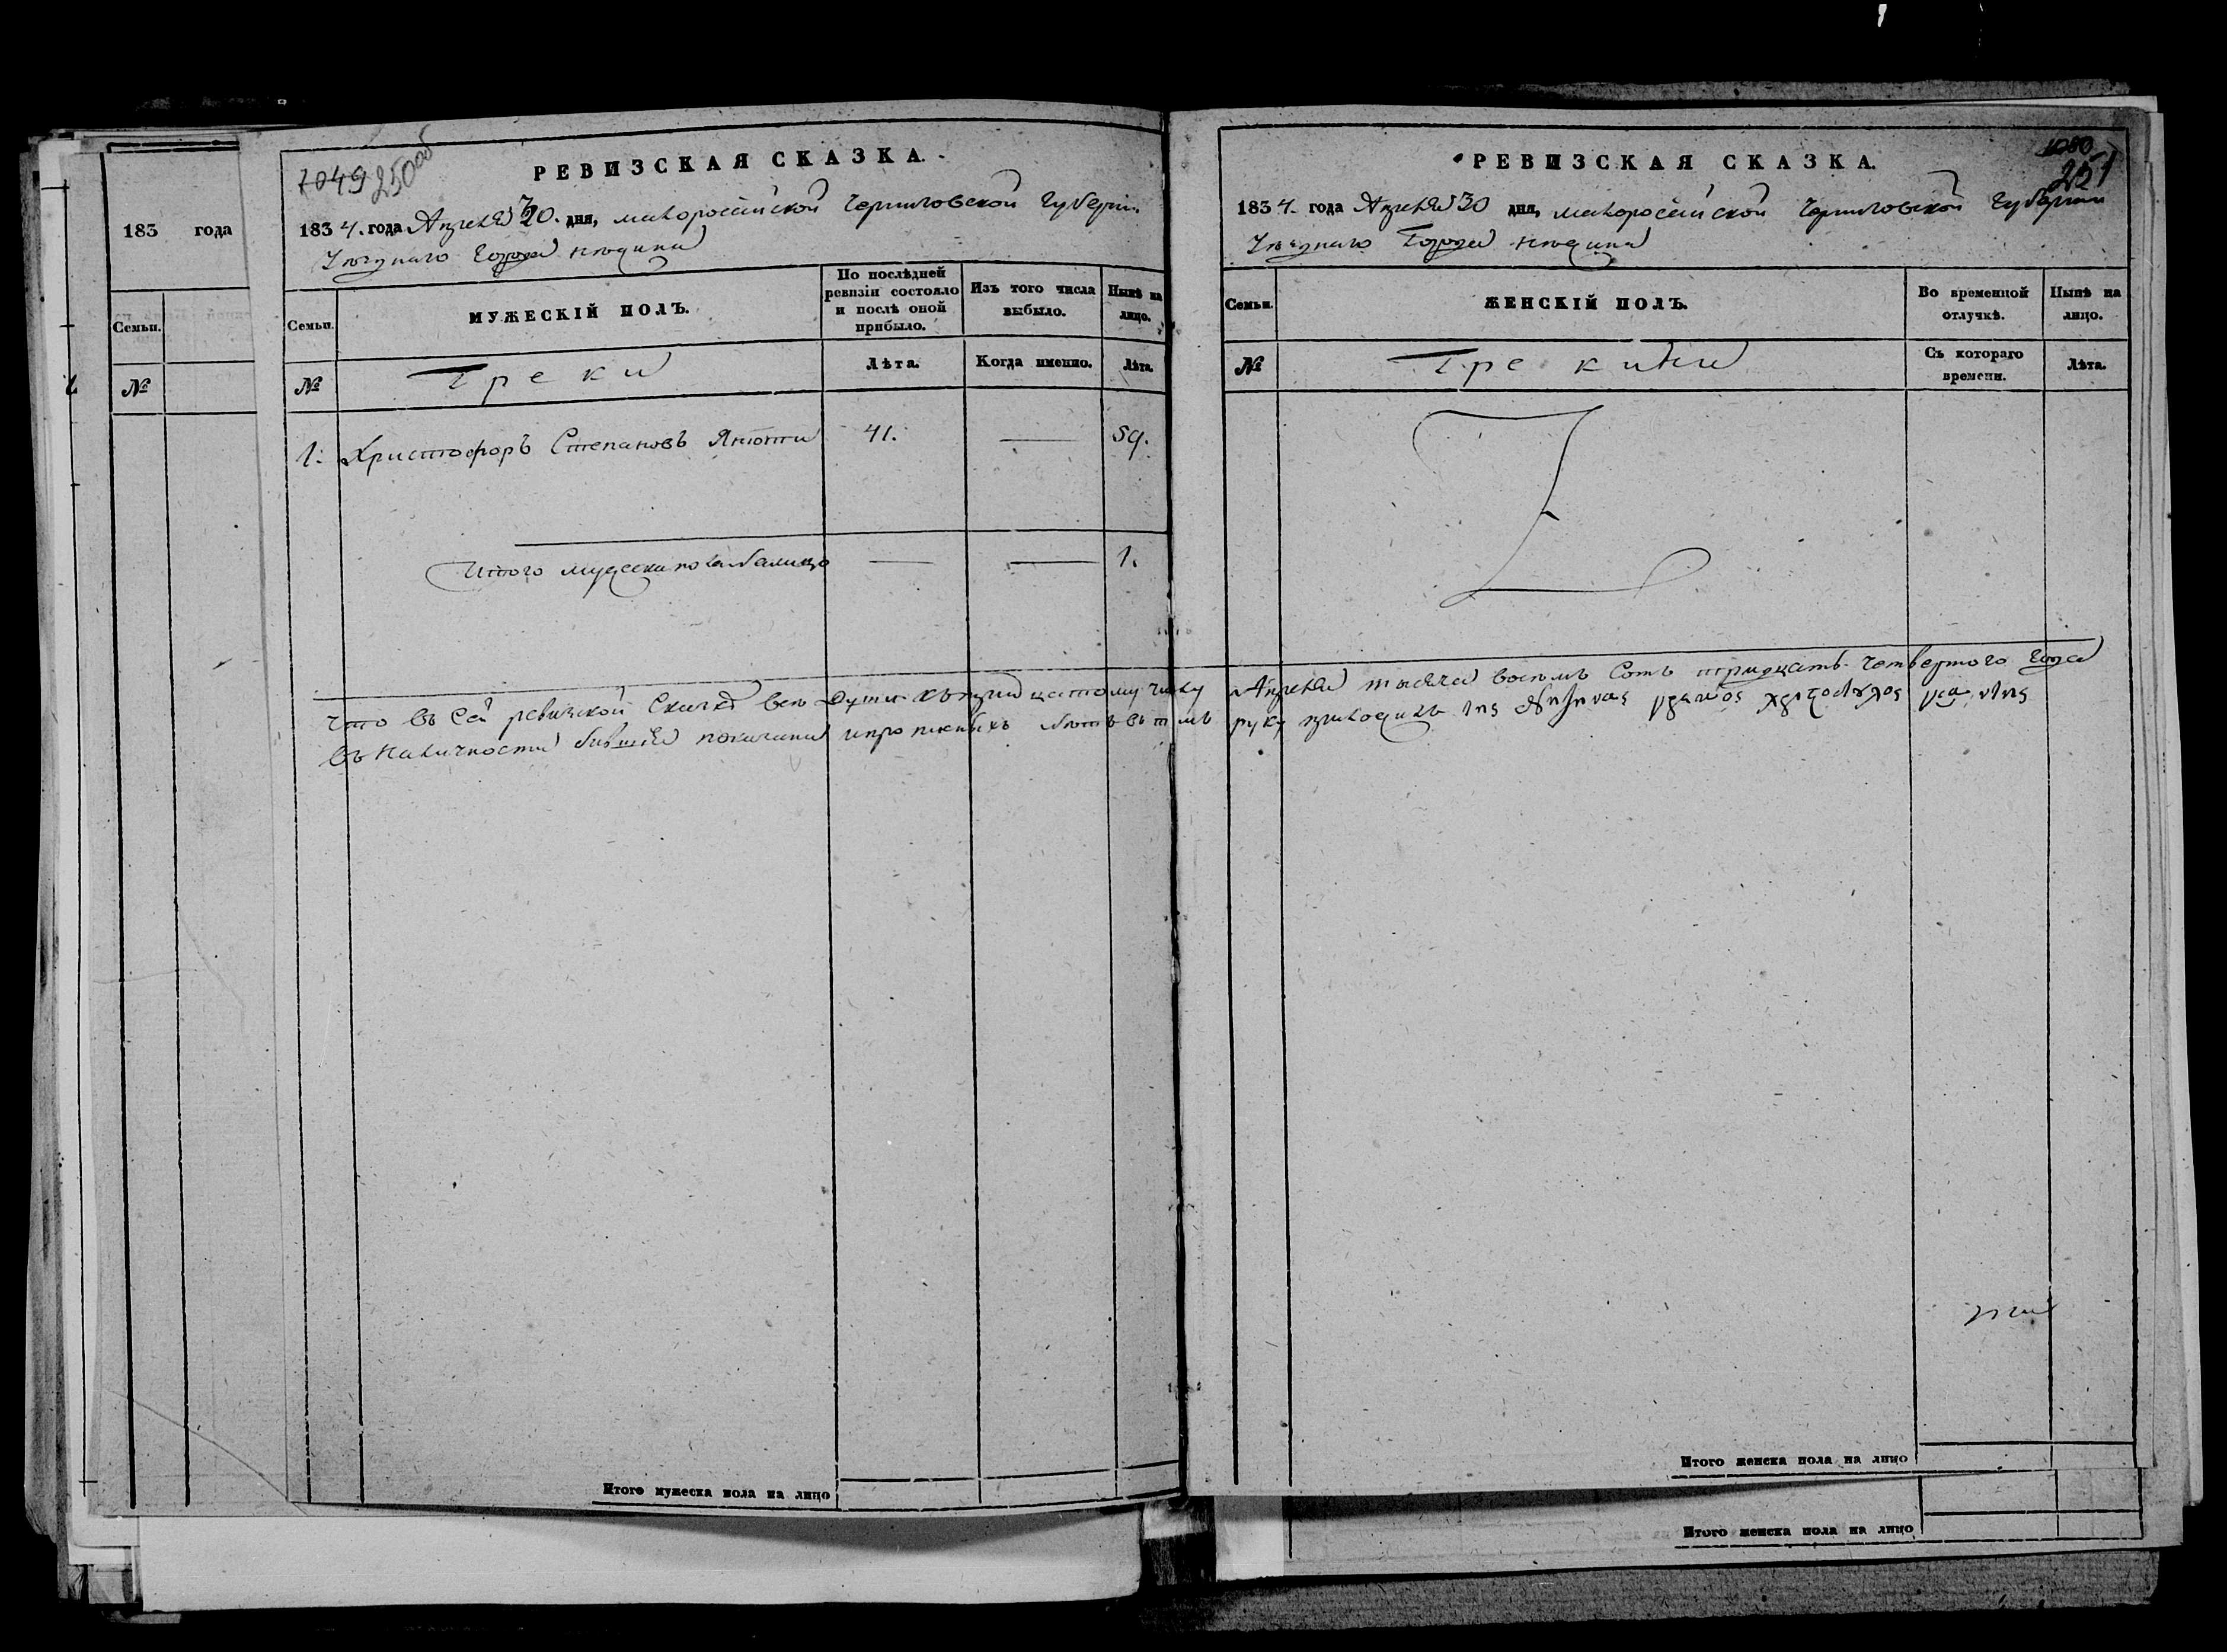 183 года
Семьи.
№
1049 250об
РЕВИЗСКАЯ СКАЗКА.
1834. года Апреля 30. дня, малоросейской Черниговской Губернии
Уезднаго Города Нежина
Семьи.
МУЖЕСКІЙ ПОЛЪ.
По послѣдней ревизіи состояло и послѣ оной прибыло.
Изъ того числа выбыло.
Нынѣ на лицо.
№
Греки
Лѣта.
Когда именно.
Лѣта.
1. Христофоръ Степановъ 41. — 59.
Итого мужеска пола налицо — — 1.
Что въ сей ревизской Сказке все Души къ тридцатому числу Апреля тысяча восемь Сотъ тридцать четвертого Года
въ наличности бывшие показани и прописныхъ нетъ въ томъ руку приложилъ
РЕВИЗСКАЯ СКАЗКА.
1050
251
1834. года Апреля 30 дня, малоросейской Черниговской Губернии
Уезднаго Города Нежина
Семьи.
ЖЕНСКІЙ ПОЛЪ.
Во временной отлучкѣ.
Нынѣ на лицо.
№
Грекини
Съ котораго времени.
Лѣта.
Итого мужеска пола на лицо
Итого женска пола на лицо
Итого женска пола на лицо